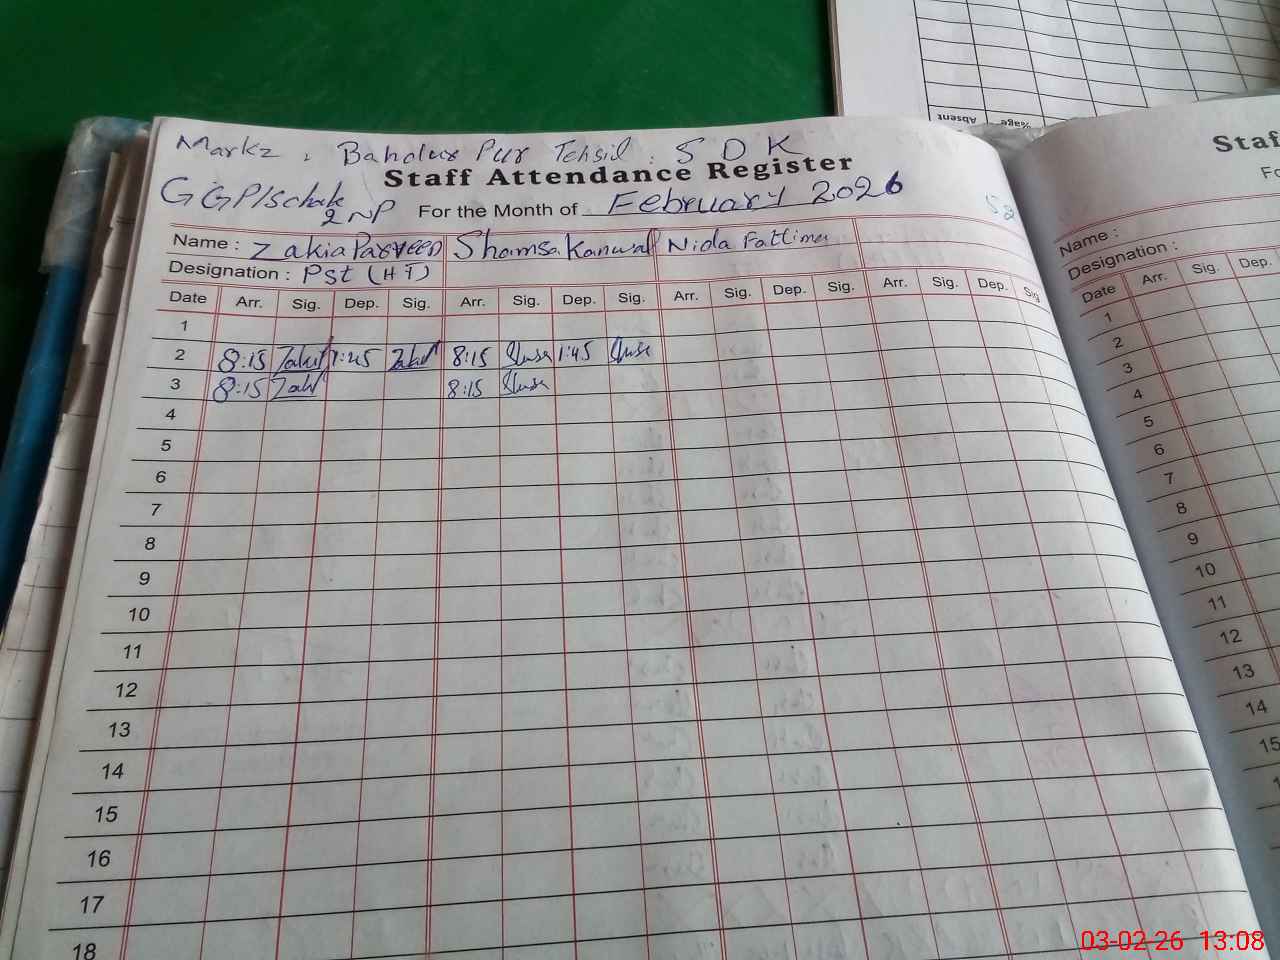 Markz : Bahdur Pur Tehsil : S D K
Staff Attendance Register
GGP/Schak 2 NP
For the Month of February 2026
Name : Zakia Parveen Shamsa Kanwal Nida Fatima
Designation : Pst (HT)
Date Arr. Sig. Dep. Sig. Arr. Sig. Dep. Sig. Arr. Sig. Dep. Sig. Arr. Sig. Dep. Sig
1
2 8:15 1:45 8:15 1:45
3 8:15 8:15
4
5
6
7
8
9
10
11
12
13
14
15
16
17
18
Staf
Fo
Name :
Designation :
Date Arr. Sig. Dep.
1
2
3
4
5
6
7
8
9
10
11
12
13
14
15
Absent %age
03-02-26 13:08